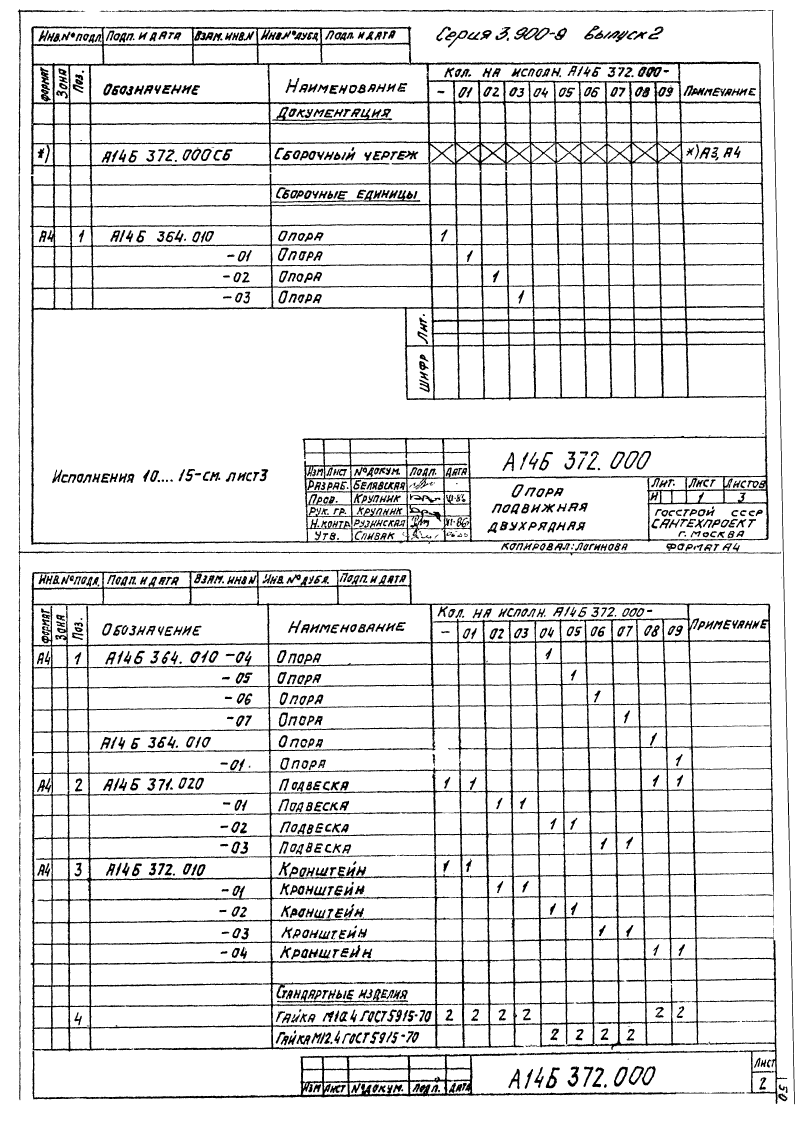 Серия 3.900-9 Выпуск 2
Инв.№подл. Подп. и дата Взам.инв.№ Инв.№дубл. Подп. и дата
Формат Зона Поз. Обозначение Наименование Кол. на исполн. А14Б 372.000- Примечание
- 01 02 03 04 05 06 07 08 09
Документация
*) А14Б 372.000СБ Сборочный чертеж *) А3, А4
Сборочные единицы
А4 1 А14Б 364.010 Опора 1
-01 Опора 1
-02 Опора 1
-03 Опора 1
Лит.
Шифр
Исполнения 10.... 15-см. лист3
А14Б 372.000
Изм Лист №докум. Подп. Дата
Разраб. Белявская
Пров. Крупник
Рук. гр. Крупник
Н.контр. Рузинская
Утв. Спивак
Опора
подвижная
двухрядная
Лит. Лист Листов
И 1 3
Госстрой СССР
Сантехпроект
г. Москва
Копировал: Логинова Формат А4
Инв.№подл. Подп. и дата Взам.инв.№ Инв.№дубл. Подп. и дата
Формат Зона Поз. Обозначение Наименование Кол. на исполн. А14Б 372.000- Примечание
- 01 02 03 04 05 06 07 08 09
А4 1 А14Б 364.010 -04 Опора 1
-05 Опора 1
-06 Опора 1
-07 Опора 1
А14Б 364.010 Опора 1
-01 Опора 1
А4 2 А14Б 371.020 Подвеска 1 1 1 1
-01 Подвеска 1 1
-02 Подвеска 1 1
-03 Подвеска 1 1
А4 3 А14Б 372.010 Кронштейн 1 1
-01 Кронштейн 1 1
-02 Кронштейн 1 1
-03 Кронштейн 1 1
-04 Кронштейн 1 1
Стандартные изделия
4 Гайка М10.4 ГОСТ5915-70 2 2 2 2 2 2
Гайка М12.4 ГОСТ5915-70 2 2 2 2
Изм Лист №докум. Подп. Дата
А14Б 372.000
Лист
2
50